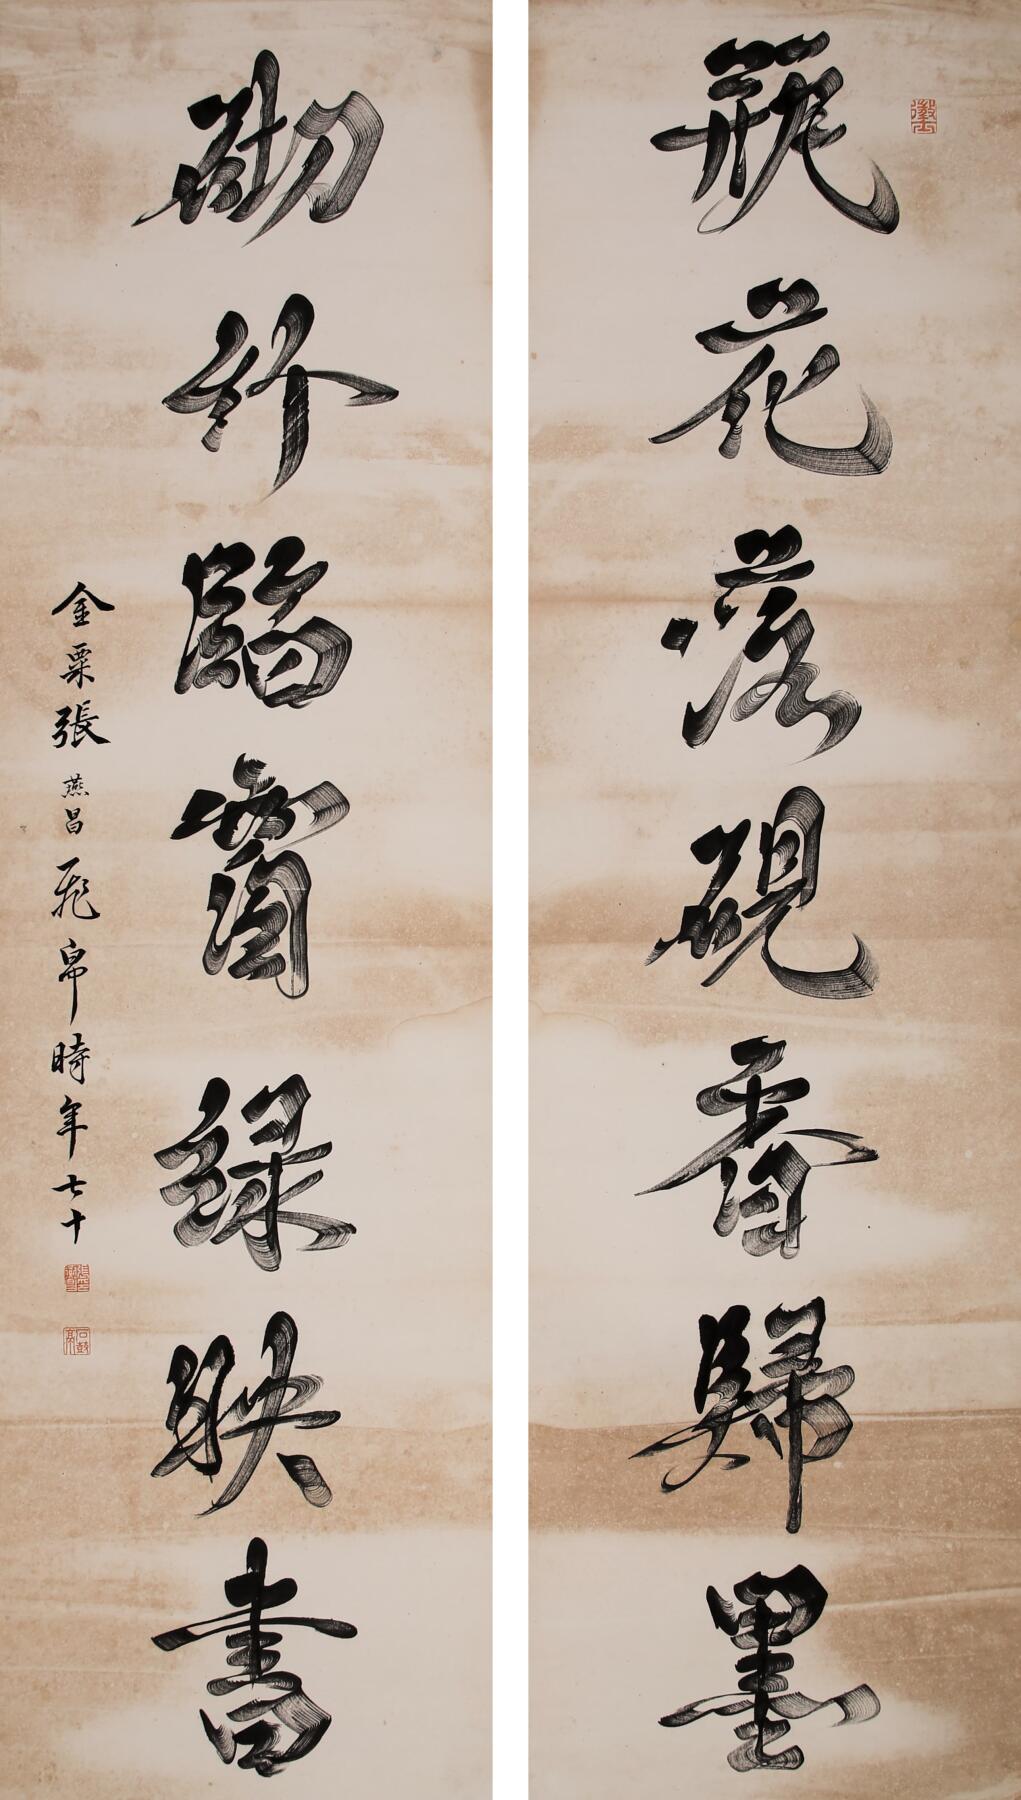 瓶花落硯香歸墨
砌竹臨窗綠映書
金粟張燕昌飛帛時年七十
石鼓亭